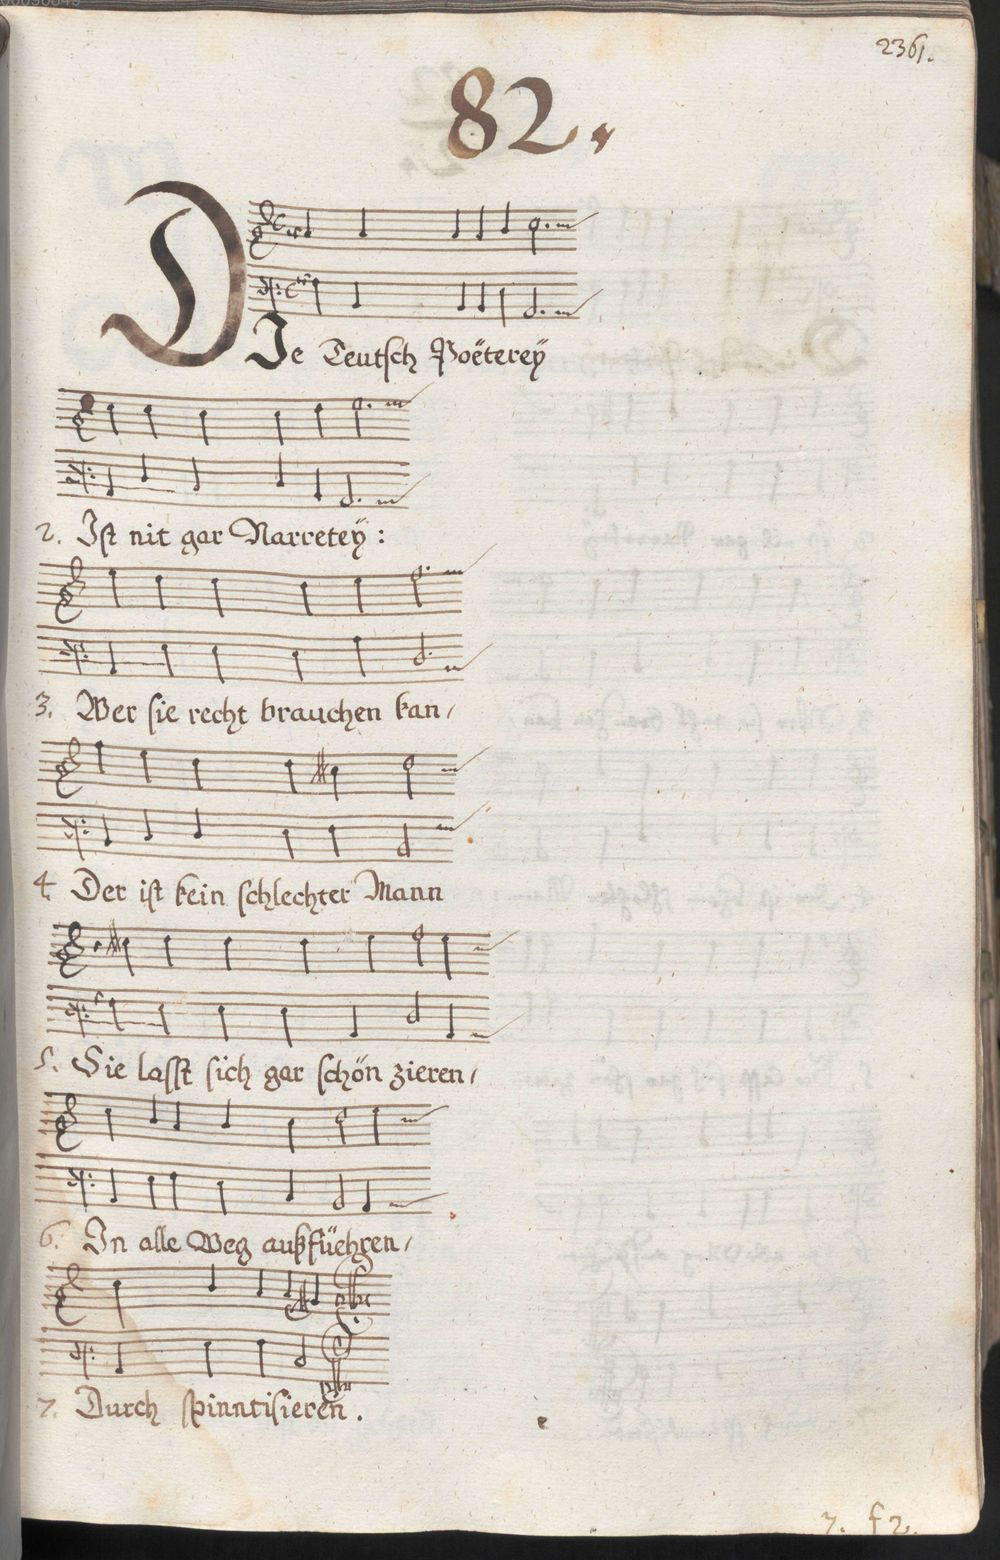 2361.
82.
DIe Teutsch Poëtereÿ
2. Ist nit gar Narreteÿ:
3. Wer sie recht brauchen kan,
4 Der ist kein schlechter Mann
5. Sie lasst sich gar schön zieren,
6. In alle Weg außfüehren,
7. Durch spinntisieren.
7. f 2.